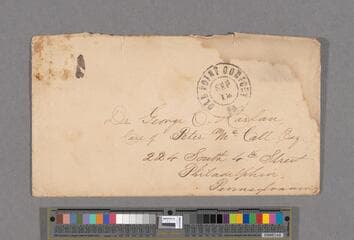 OLD POINT COMFORT
SEP
12
Dr George O. Harlan
Care of Peter Mc Call Esq
224 South 4th Street
Philadelphia
Pennsylvania